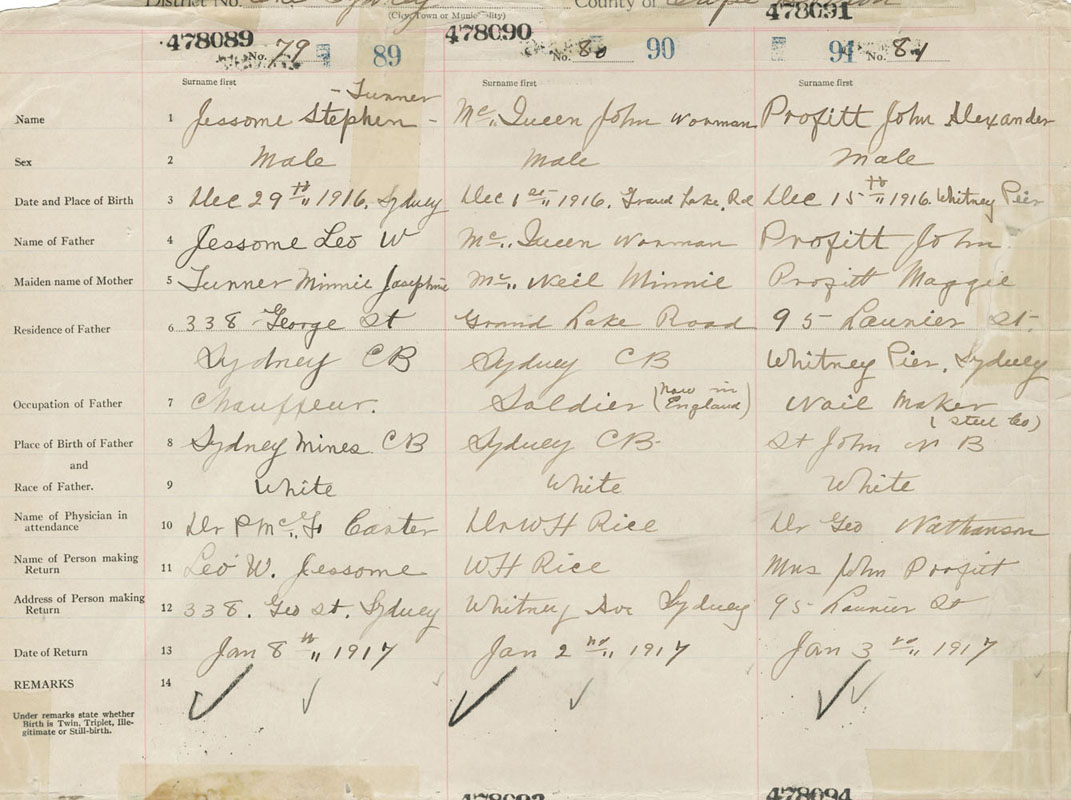 District No. The Sydney County of Cape
(City, Town or Municipality)
478089 478090 478091
No. 79 89 No. 80 90 91 No. 81
Surname first Surname first Surname first
- Tunner
Name 1 Jessome Stephen - Mc,, Queen John Norman Profitt John Alexander
Sex 2 Male Male Male
Date and Place of Birth 3 Dec 29th,, 1916. Sydney Dec 1st,, 1916. Grand Lake. Rd Dec 15th,, 1916. Whitney Pier
Name of Father 4 Jessome Leo W Mc,, Queen Norman Profitt John
Maiden name of Mother 5 Tunner Minnie Josephine Mc,, Neil Minnie Profitt Maggie
Residence of Father 6 338 George St Grand Lake Road 95 Launier St.
Sydney CB Sydney CB Whitney Pier, Sydney
Occupation of Father 7 Chauffeur. Soldier (now in England) Nail Maker
(Steel Co)
Place of Birth of Father 8 Sydney Mines. CB Sydney CB- St John N B
and
Race of Father. 9 White White White
Name of Physician in attendance 10 Dr P Mc,, G Carter Dr WH Rice Dr Geo Nathanson
Name of Person making Return 11 Leo W. Jessome WH Rice Mrs John Profitt
Address of Person making Return 12 338. Geo St, Sydney Whitney Ave Sydney 95 Launier St
Date of Return 13 Jan 8th,, 1917 Jan 2nd,, 1917 Jan 3rd,, 1917
REMARKS 14
Under remarks state whether
Birth is Twin, Triplet, Ille-
gitimate or Still-birth.
478094